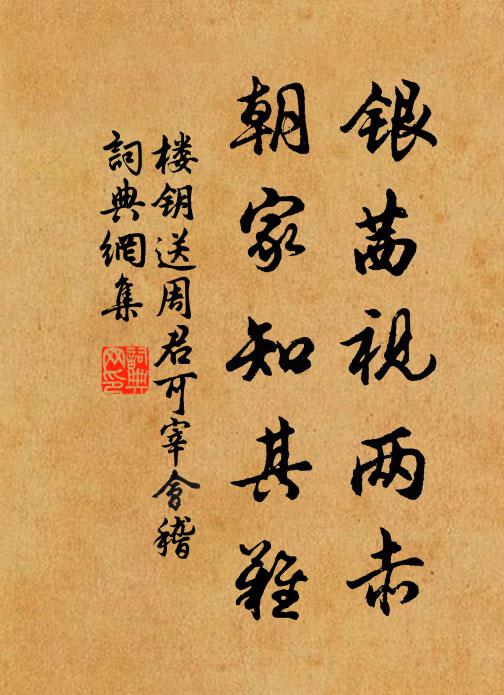 银茜视两赤
朝家知其难
楼钥送周君可宰会稽
词典网集
词典网印